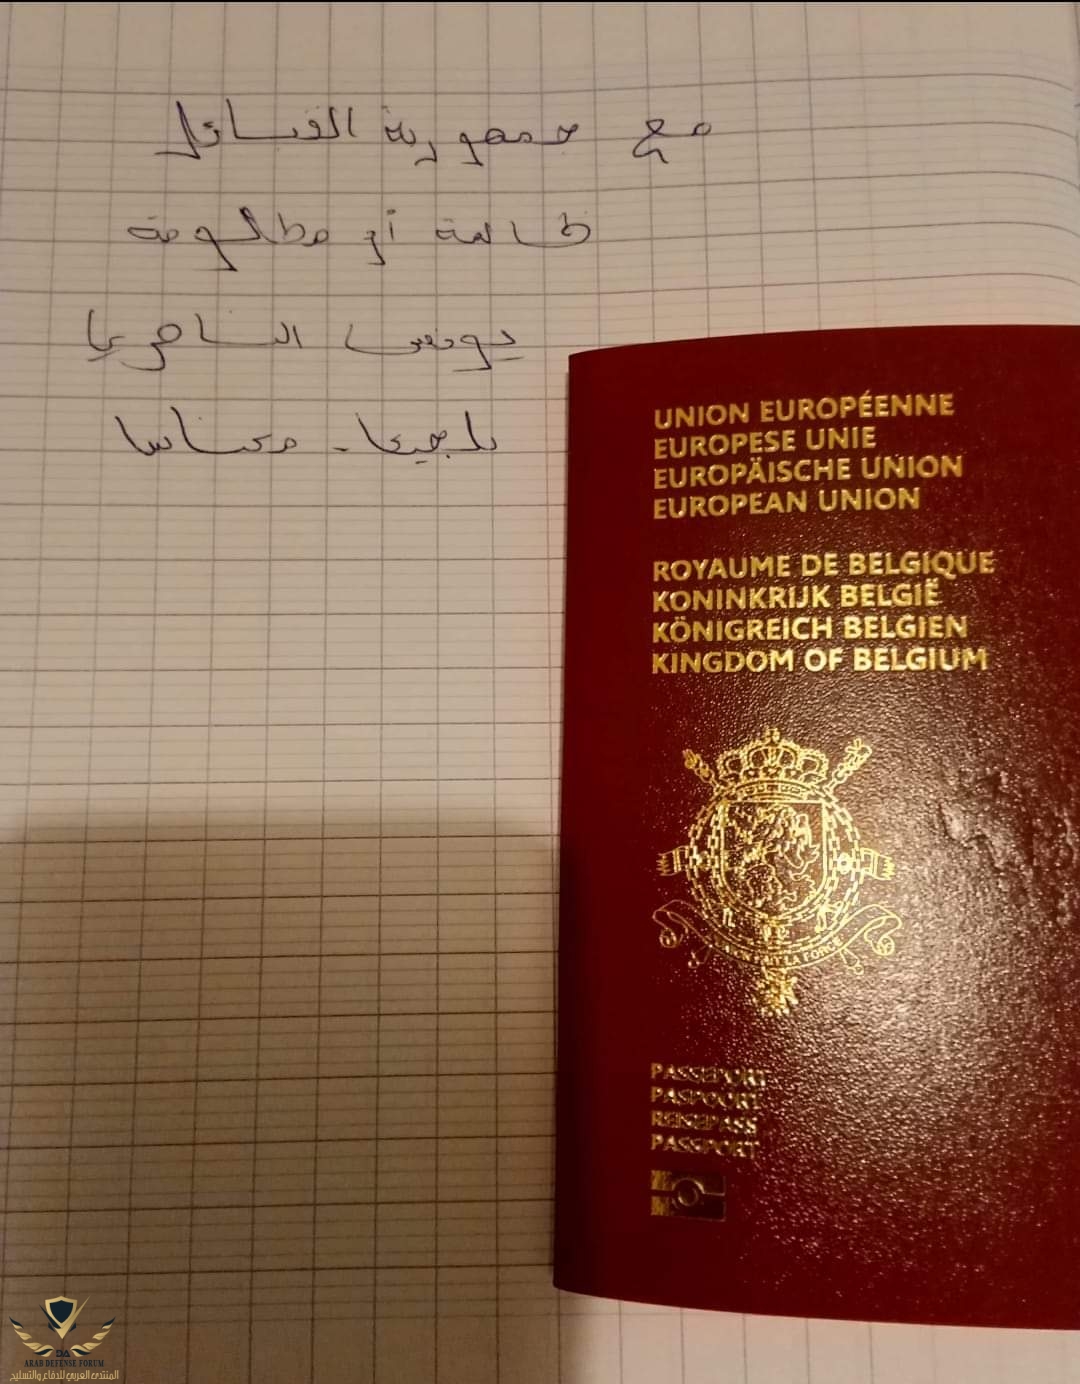 مع جمهورية القبائل
ظالمة أو مظلومة
يونس الناصري
بلجيكا -
UNION EUROPÉENNE
EUROPESE UNIE
EUROPÄISCHE UNION
EUROPEAN UNION
ROYAUME DE BELGIQUE
KONINKRIJK BELGIË
KÖNIGREICH BELGIEN
KINGDOM OF BELGIUM
LA FORCE
PASSEPORT
PASPOORT
REISEPASS
PASSPORT
DA
ARAB DEFENSE FORUM
المنتدى العربي للدفاع والتسليح